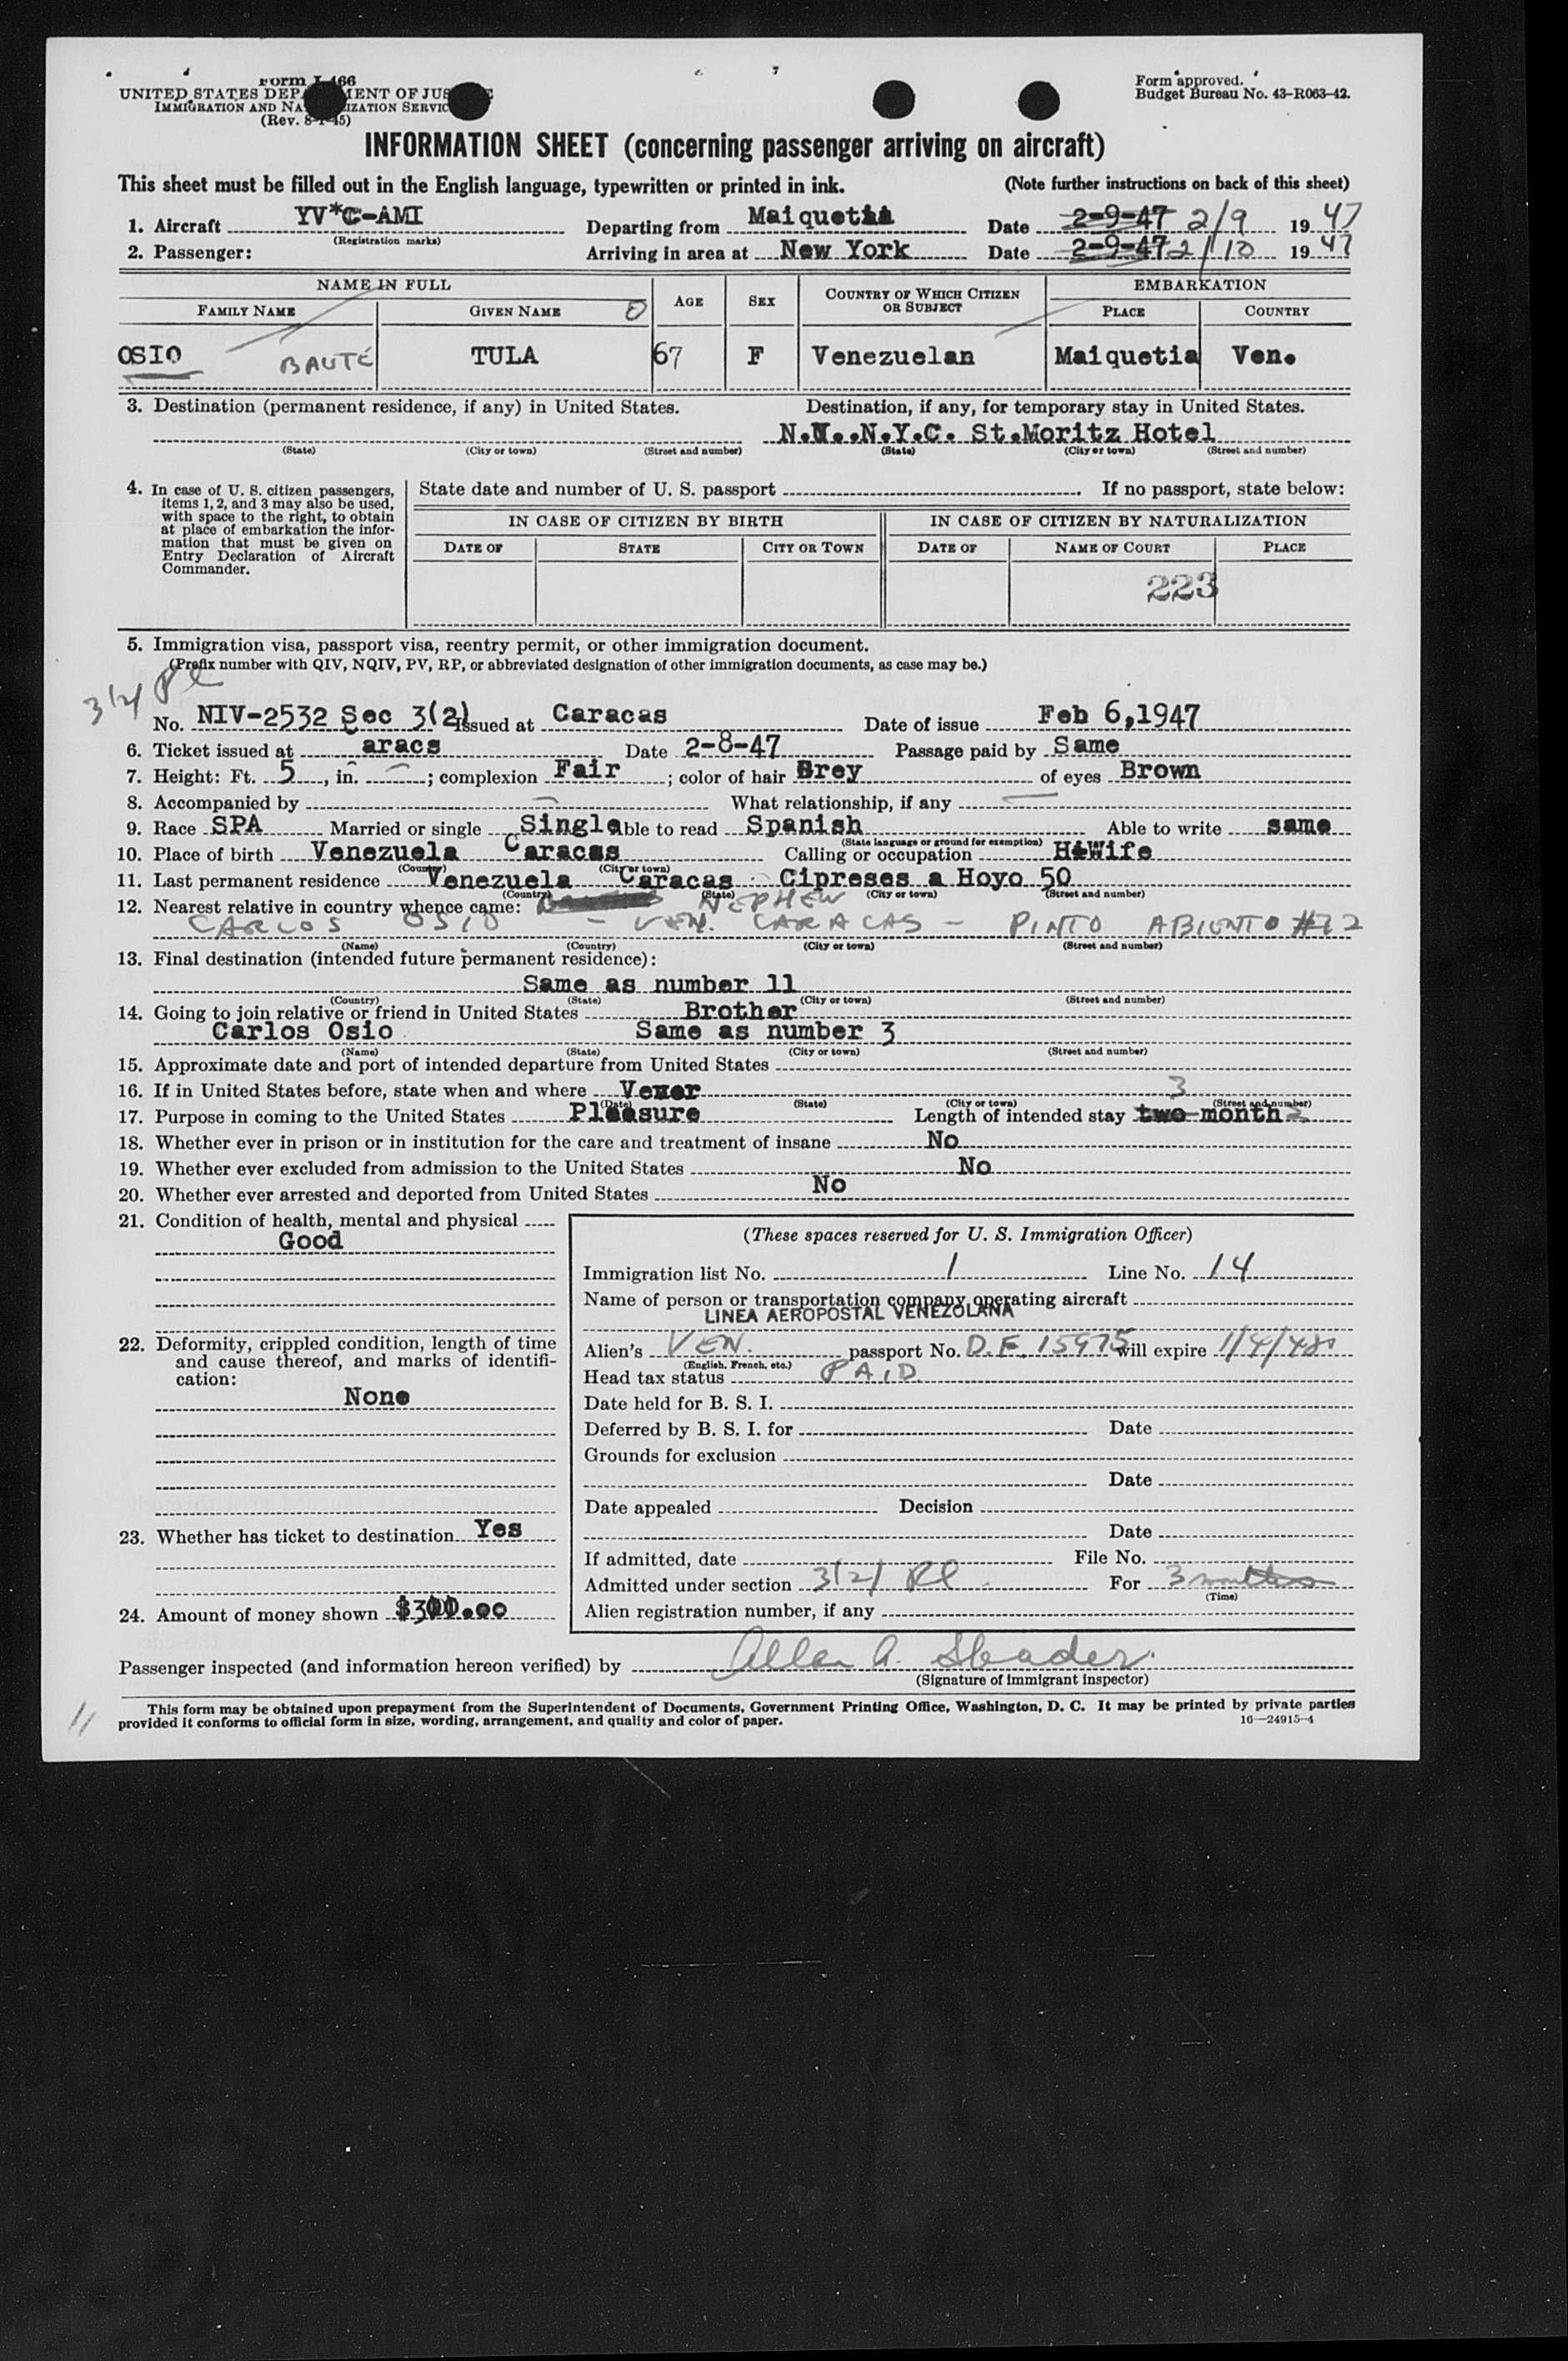 Form I-466
UNITED STATES DEPARTMENT OF JUSTICE
IMMIGRATION AND NATURALIZATION SERVICE
(Rev. 8-1-45)
Form approved.
Budget Bureau No. 43-R063-42.
INFORMATION SHEET (concerning passenger arriving on aircraft)
This sheet must be filled out in the English language, typewritten or printed in ink. (Note further instructions on back of this sheet)
1. Aircraft YV*C-AMI Departing from Maiquetia Date 2-9-47 2/9 1947
(Registration marks)
2. Passenger: Arriving in area at New York Date 2-9-47 2/10 1947
NAME IN FULL AGE SEX COUNTRY OF WHICH CITIZEN OR SUBJECT EMBARKATION
FAMILY NAME GIVEN NAME PLACE COUNTRY
OSIO BAUTÉ TULA 67 F Venezuelan Maiquetia Ven.
3. Destination (permanent residence, if any) in United States. Destination, if any, for temporary stay in United States.
N.Y..N.Y.C. St.Moritz Hotel
(State) (City or town) (Street and number) (State) (City or town) (Street and number)
4. In case of U. S. citizen passengers, items 1, 2, and 3 may also be used, with space to the right, to obtain at place of embarkation the information that must be given on Entry Declaration of Aircraft Commander.
State date and number of U. S. passport . If no passport, state below:
IN CASE OF CITIZEN BY BIRTH IN CASE OF CITIZEN BY NATURALIZATION
DATE OF STATE CITY OR TOWN DATE OF NAME OF COURT PLACE
223
5. Immigration visa, passport visa, reentry permit, or other immigration document.
(Prefix number with QIV, NQIV, PV, RP, or abbreviated designation of other immigration documents, as case may be.)
3(2) Pl
No. NIV-2532 Sec 3(2) Issued at Caracas Date of issue Feb 6,1947
6. Ticket issued at Caracs Date 2-8-47 Passage paid by Same
7. Height: Ft. 5, in. -; complexion Fair; color of hair Grey of eyes Brown
8. Accompanied by - What relationship, if any -
9. Race SPA Married or single Single Able to read Spanish Able to write same
(State language or ground for exemption)
10. Place of birth Venezuela Caracas Calling or occupation H.Wife
(Country) (City or town)
11. Last permanent residence Venezuela Caracas Cipreses a Hoyo 50
(Country) (State) (City or town) (Street and number)
12. Nearest relative in country whence came: NEPHEW
CARLOS OSIO - VEN. CARACAS - PINTO ABIENTO #72
(Name) (Country) (City or town) (Street and number)
13. Final destination (intended future permanent residence):
Same as number 11
(Country) (State) (City or town) (Street and number)
14. Going to join relative or friend in United States Brother
Carlos Osio Same as number 3
(Name) (State) (City or town) (Street and number)
15. Approximate date and port of intended departure from United States
16. If in United States before, state when and where Never
(Date) (State) (City or town) (Street and number)
17. Purpose in coming to the United States Pleasure Length of intended stay two 3 months
18. Whether ever in prison or in institution for the care and treatment of insane No
19. Whether ever excluded from admission to the United States No
20. Whether ever arrested and deported from United States No
21. Condition of health, mental and physical
Good
22. Deformity, crippled condition, length of time and cause thereof, and marks of identification:
None
23. Whether has ticket to destination Yes
24. Amount of money shown $300.00
(These spaces reserved for U. S. Immigration Officer)
Immigration list No. 1 Line No. 14
Name of person or transportation company operating aircraft
LINEA AEROPOSTAL VENEZOLANA
Alien's VEN. passport No. D.F. 15975 will expire 1/4/48
(English, French, etc.)
Head tax status PAID
Date held for B. S. I.
Deferred by B. S. I. for Date
Grounds for exclusion
Date
Date appealed Decision
Date
If admitted, date File No.
Admitted under section 3(2) Pl For 3 months
(Time)
Alien registration number, if any
Passenger inspected (and information hereon verified) by Allen A. Shader
(Signature of immigrant inspector)
11
This form may be obtained upon prepayment from the Superintendent of Documents, Government Printing Office, Washington, D. C. It may be printed by private parties
provided it conforms to official form in size, wording, arrangement, and quality and color of paper. 16—24915-4